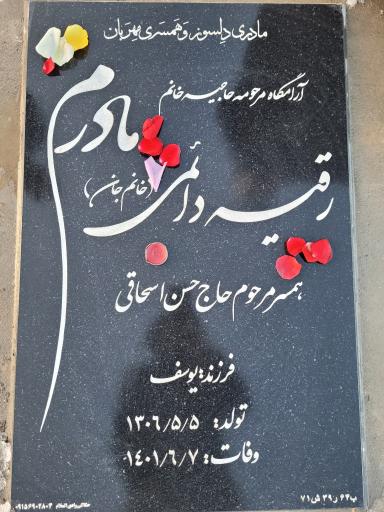 مادری دلسوز و همسری مهربان
آرامگاه مرحومه حاجیه خانم
مادرم
رقیه دائمی
(خانم جان)
همسر مرحوم حاج حسن اسحاقی
فرزند: یوسف
تولد: ۱۳۰۶/۵/۵
وفات: ۱۴۰۱/۶/۷
ب۶۴ ر۳۹ ش۷۱
۰۹۱۵۶۹۰۲۸۰۳